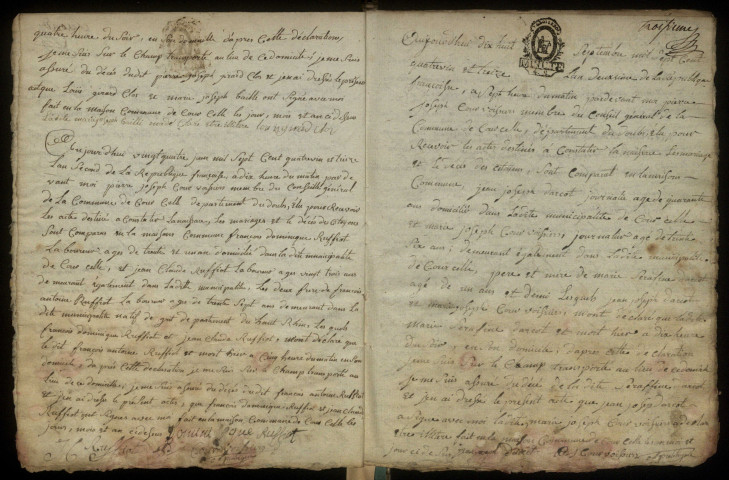 quatre heure du Soir, en Son domicile, d'après Cette déclaration,
je me suis Sur le Champ transporté au lieu de ce domicile, je me suis
assuré du décès dudit pierre joseph girard Clos et j'en ai dressé le présent
acte que Louis girard Clos et marie joseph baille ont Signé avec moi
fait en la maison Commune de Cour Celle les jour, mois et an ci dessus
Aujourd'huy vingt quatre juin mil Sept Cent quatrevin et treize
L'an Second de La République française, a dix heure du matin par de
vant moi pierre joseph Cour voisier membre du Conseille général
de La Commune de Cour Celle département du doubs, élu pour Recevoir
Les actes destiné a Constater La naissance, les mariages et le décès des Citoyens
Sont Comparus en la maison Commune françois dominique Ruffiot
La boureur, agés de trente et un an domicilié dans la dite municipalité
de Cour Celle, et jean Claude Ruffiot La boureur agé vingt trois ans
demeurant également dans Ladite municipalité. Les deux frere de françois
antoine Ruffiot La boureur agé de trente Sept ans demeurant dans La
dite municipalité natif de département du haut Rhin, Les quels
françois dominique Ruffiot et jean Claude Ruffiot, m'ont déclaré que
le dit françois antoine Ruffiot est mort hier a Cinq heure du matin en Son
domicile, d'après Cette déclaration je me suis Sur le Champ transporté au
lieu de ce domicile, je me suis assuré du décès dudit françois antoine Ruffiot
et j'en ai dressé le présent acte, que françois dominique Ruffiot et jean Claude
Ruffiot ont Signé avec moi fait en la maison Commune de Cour Celle les
jour, mois et an ci dessus
troisieme
MINUTE
Aujourd'hui dix huit Septembre mil Sept Cent
quatrevin et treize L'an deuxieme de la République
francoise, a Sept heure du matin par devant moi pierre
joseph Cour voisier membre du Conseil général de la
Commune de Cour Celle, département du doubs, élu pour
Recevoir les actes destinés a Constater la naissance, les mariage
et le décès des Citoyens, Sont Comparut en la maison
Commune, jean joseph darçot journalier agé de quarante
ans domicilié dans Ladite municipalité de Cour Celle
et marie joseph Cour voisier, journalier agé de trente
Six ans, demeurant également dans Ladite municipalité
de Cour Celle, pere et mere de marie Serafine darçot
agé de un ans et Demi Lesquels jean joseph darçot
et marie joseph Cour voisier, m'ont déclaré que ladite
marie Serafine darçot est mort hier a dix heure
du Soir, en Son domicile, d'apres Cette déclaration
je me suis Sur le Champ transporté au lieu de ce domicile
je me suis assuré du décès de Ladite Serafine darçot
et j'en ai dressé le présent acte que jean joseph darçot
a Signé avec moi Ladite marie joseph Cour voisier a déclaré
être illétré fait en la maison Commune de Cour Celle les an et